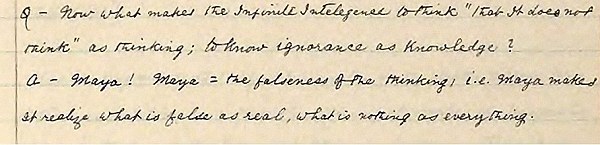 Q - Now what makes the Infinite Intelegence to think "that It does not
think" as thinking; to know ignorance as Knowledge?
A - Maya! Maya = the falseness of the thinking; i.e. Maya makes
It realize what is false as real, what is nothing as everything.